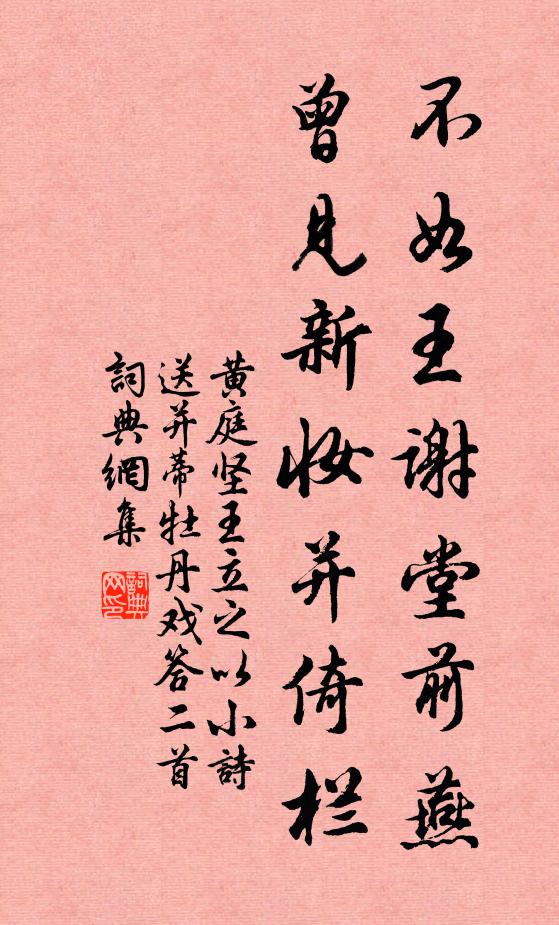 不如王謝堂前燕
曾見新妝并倚栏
黄庭坚王立之以小詩
送并蒂牡丹戏答二首
詞典網集
詞典网印